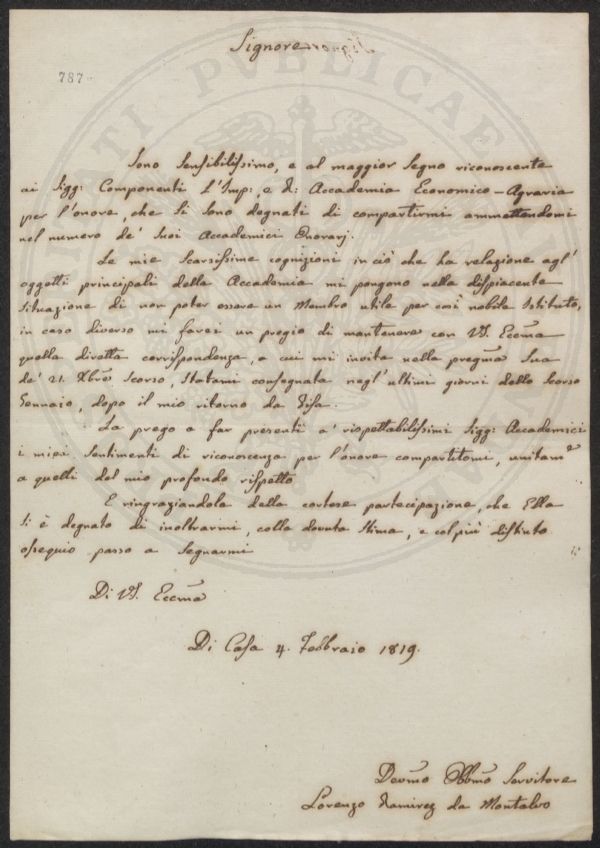 Signore
787.
Sono sensibilissimo, e al maggior segno riconoscente
ai Sigg: Componenti l'Imp: e R: Accademia Economico-Agraria
per l'onore, che si sono degnati di compartirmi ammettendomi
nel numero de' suoi Accademici Onorarj.
Le mie scarsissime cognizioni in ciò che ha relazione agl'
oggetti principali della Accademia mi pongono nella dispiacente
situazione di non poter essere un Membro utile per così nobile Istituto,
in caso diverso mi farei un pregio di mantenere con VS. Eccma
quella diretta corrispondenza, a cui mi invita nella pregma sua
de' 21. Xbre scorso, statami consegnata negl'ultimi giorni dello scorso
Gennaio, dopo il mio ritorno da Pisa.
La prego a far presenti a' rispettabilissimi Sigg: Accademici
i miei sentimenti di riconoscenza per l'onore compartitomi, unitame
a quelli del mio profondo rispetto
E ringraziandola della cortese partecipazione, che Ella
si è degnata di inoltrarmi, colla dovuta stima, e col più distinto
ossequio passo a segnarmi
Di VS. Eccma
Di Casa 4. Febbraio 1819.
Devmo Obbmo Servitore
Lorenzo Ramirez da Montalvo